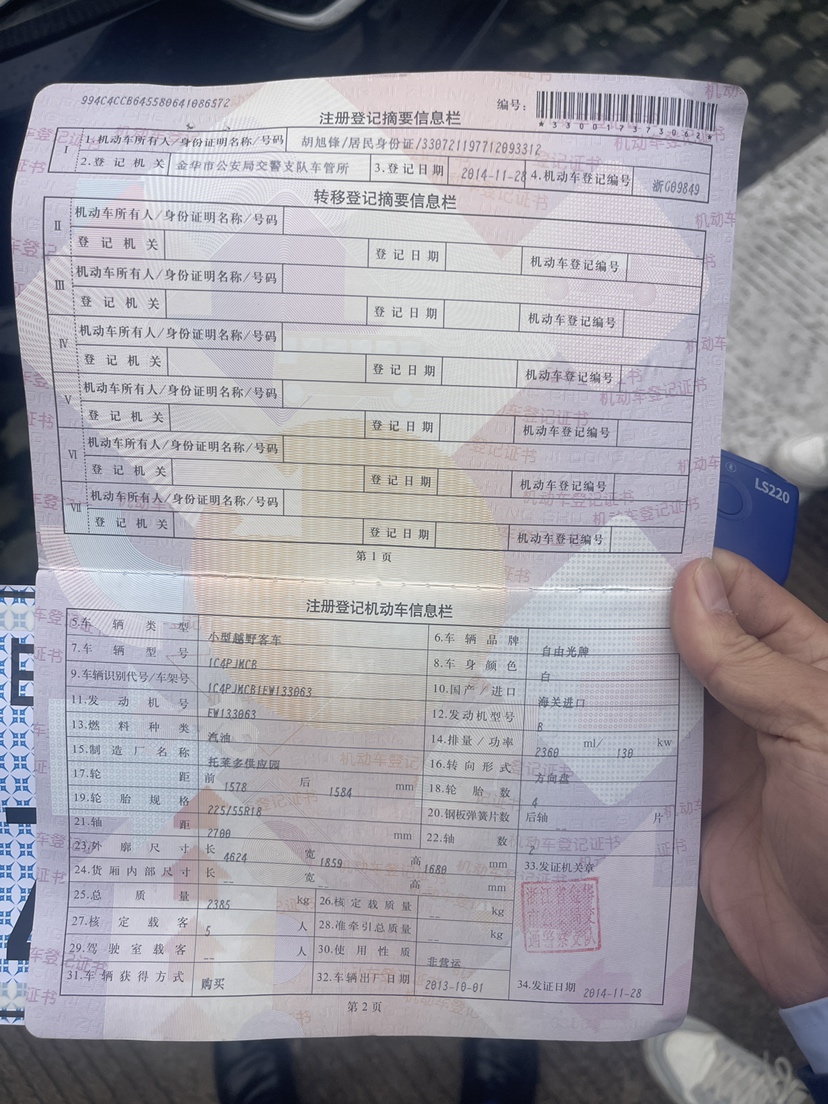 994C4CCB645580641086572
编号:
*330017373062*
注册登记摘要信息栏
I 1.机动车所有人/身份证明名称/号码 胡旭锋/居民身份证/330721197712093312
2.登记机关 金华市公安局交警支队车管所 3.登记日期 2014-11-28 4.机动车登记编号 浙G09849
转移登记摘要信息栏
II 机动车所有人/身份证明名称/号码
登记机关 登记日期 机动车登记编号
III 机动车所有人/身份证明名称/号码
登记机关 登记日期 机动车登记编号
IV 机动车所有人/身份证明名称/号码
登记机关 登记日期 机动车登记编号
V 机动车所有人/身份证明名称/号码
登记机关 登记日期 机动车登记编号
VI 机动车所有人/身份证明名称/号码
登记机关 登记日期 机动车登记编号
VII 机动车所有人/身份证明名称/号码
登记机关 登记日期 机动车登记编号
第1页
LS220
注册登记机动车信息栏
5.车辆类型 小型越野客车 6.车辆品牌 自由光牌
7.车辆型号 1C4PJMCB 8.车身颜色 白
9.车辆识别代号/车架号 1C4PJMCB1EW133063 10.国产/进口 海关进口
11.发动机号 EW133063 12.发动机型号 8
13.燃料种类 汽油 14.排量/功率 2360 ml/ 130 kw
15.制造厂名称 托莱多供应园 16.转向形式 方向盘
17.轮距 前 1578 后 1584 mm 18.轮胎数 4
19.轮胎规格 225/55R18 20.钢板弹簧片数 后轴 -- 片
21.轴距 2700 mm 22.轴数 2
23.外廓尺寸 长 4624 宽 1859 高 1680 mm 33.发证机关章
24.货厢内部尺寸 长 -- 宽 -- 高 -- mm
25.总质量 2385 kg 26.核定载质量 -- kg
27.核定载客 5 人 28.准牵引总质量 -- kg
29.驾驶室载客 -- 人 30.使用性质 非营运
31.车辆获得方式 购买 32.车辆出厂日期 2013-10-01 34.发证日期 2014-11-28
第2页